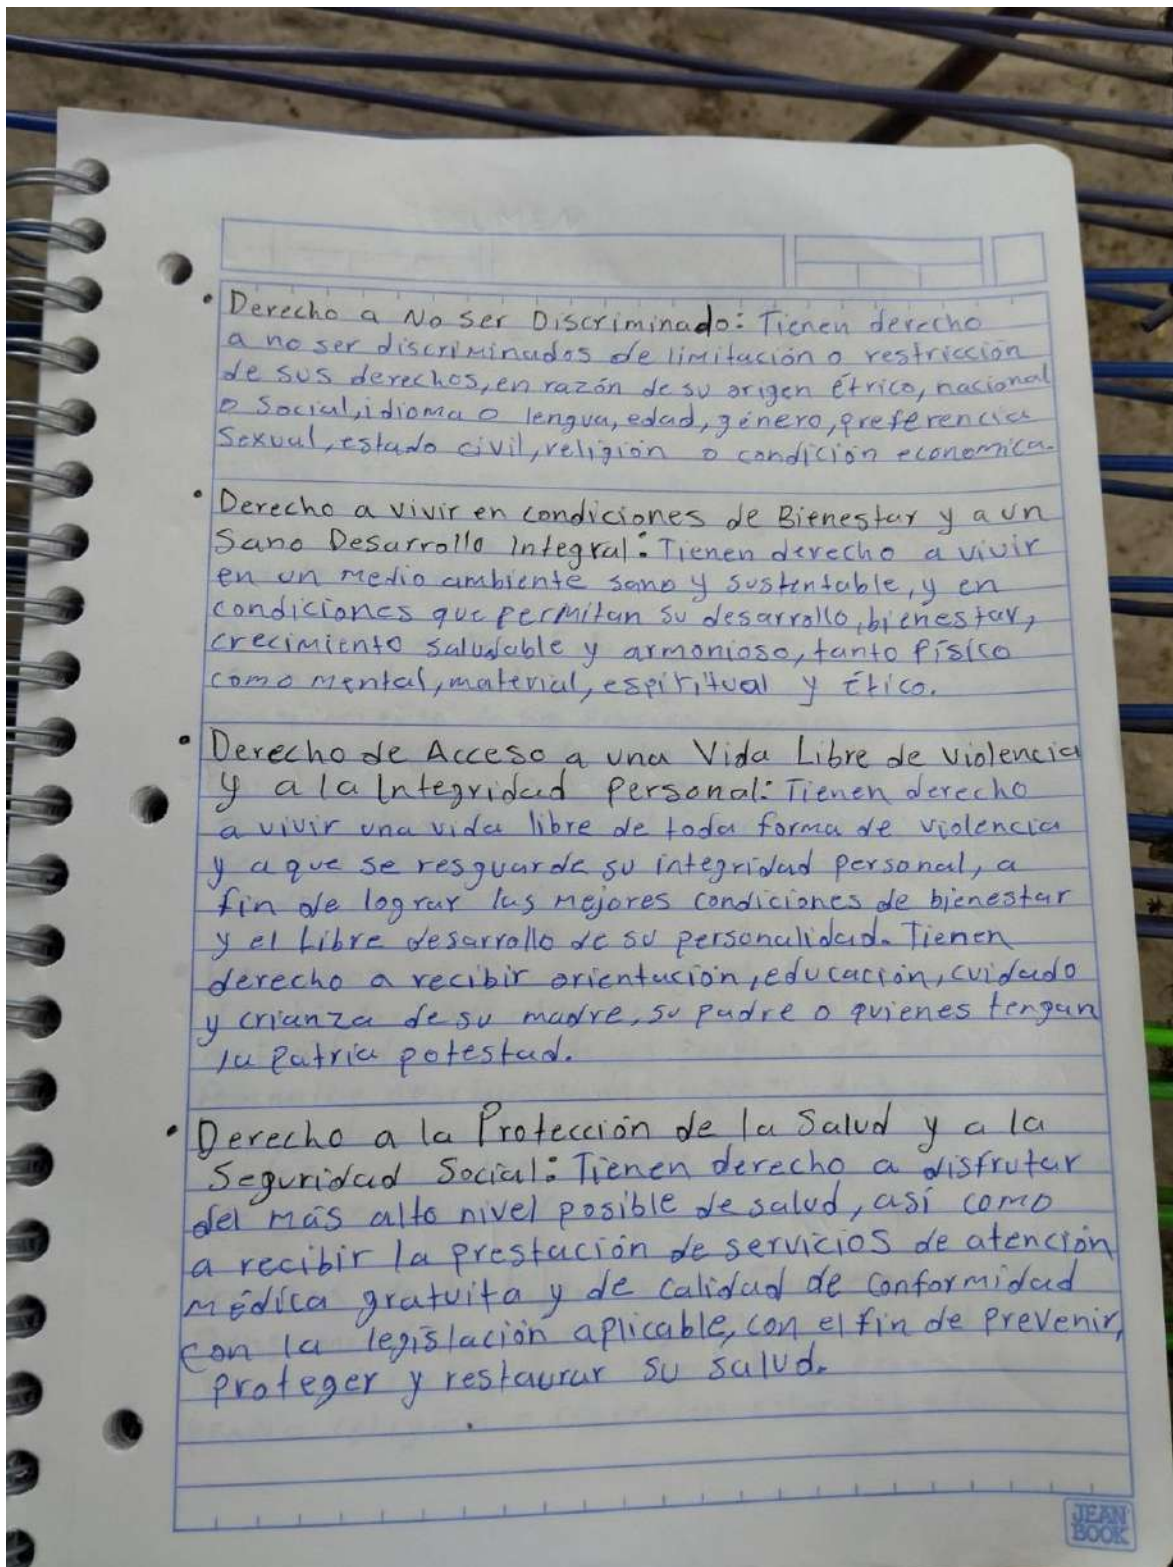 • Derecho a No Ser Discriminado: Tienen derecho
a no ser discriminados de limitación o restricción
de sus derechos, en razón de su origen étrico, nacional
o Social, idioma o lengua, edad, género, preferencia
Sexual, estado civil, religión o condición economica.
• Derecho a vivir en condiciones de Bienestar y a un
Sano Desarrollo Integral: Tienen derecho a vivir
en un medio ambiente sano y sustentable, y en
condiciones que permitan su desarrollo, bienestar,
crecimiento saludable y armonioso, tanto físico
como mental, material, espiritual y ético.
• Derecho de Acceso a una Vida Libre de violencia
y a la Integridad Personal: Tienen derecho
a vivir una vida libre de toda forma de violencia
y a que se resguarde su integridad personal, a
fin de lograr las mejores condiciones de bienestar
y el Libre desarrollo de su personalidad. Tienen
derecho a recibir orientación, educación, cuidado
y crianza de su madre, su padre o quienes tengan
la patria potestad.
• Derecho a la Protección de la Salud y a la
Seguridad Social: Tienen derecho a disfrutar
del más alto nivel posible de salud, así como
a recibir la prestación de servicios de atención
médica gratuita y de calidad de conformidad
con la legislación aplicable, con el fin de prevenir,
proteger y restaurar su salud.
JEAN
BOOK